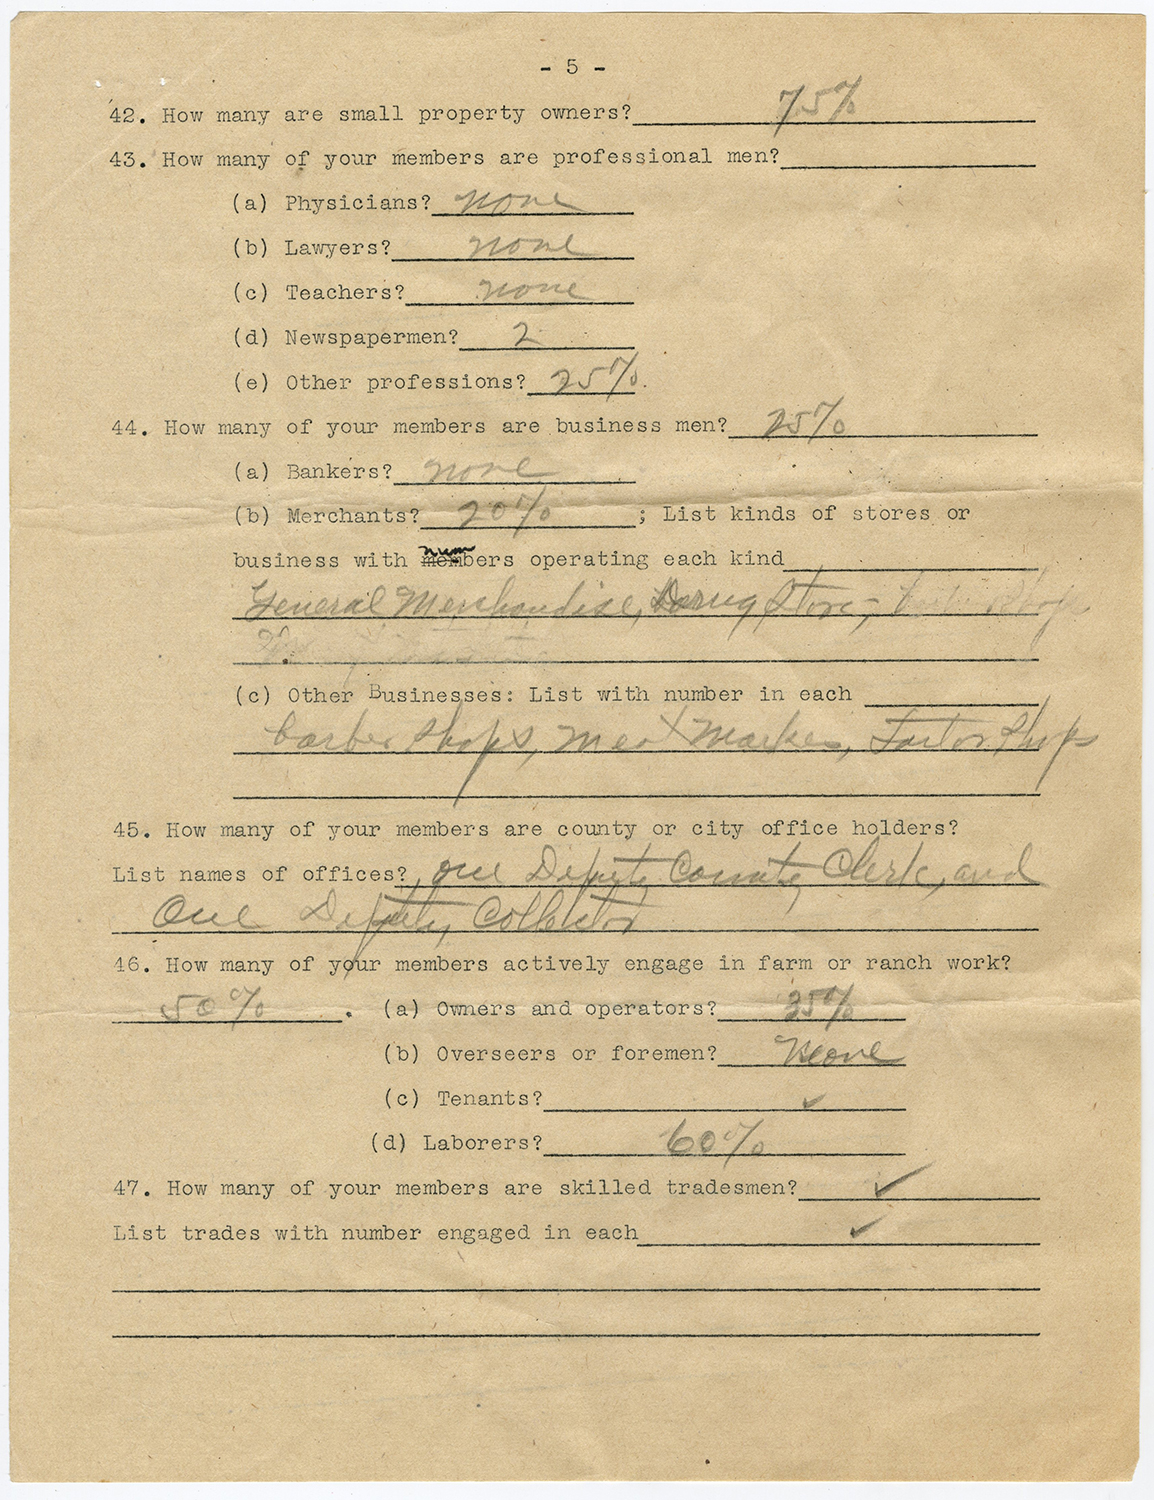 - 5 -
42. How many are small property owners? 75%
43. How many of your members are professional men?
(a) Physicians? none
(b) Lawyers? none
(c) Teachers? none
(d) Newspapermen? 2
(e) Other professions? 25%.
44. How many of your members are business men? 25%
(a) Bankers? none
(b) Merchants? 20% ; List kinds of stores or
business with numbers operating each kind
General Merchandise, Drug Store, Shops
(c) Other Businesses: List with number in each
barber shops, Meat Market, Tailor Shops
45. How many of your members are county or city office holders?
List names of offices? one Deputy County Clerk, and
One Deputy, Collector
46. How many of your members actively engage in farm or ranch work?
50% . (a) Owners and operators? 35%
(b) Overseers or foremen? None
(c) Tenants? ✓
(d) Laborers? 60%
47. How many of your members are skilled tradesmen? ✓
List trades with number engaged in each ✓